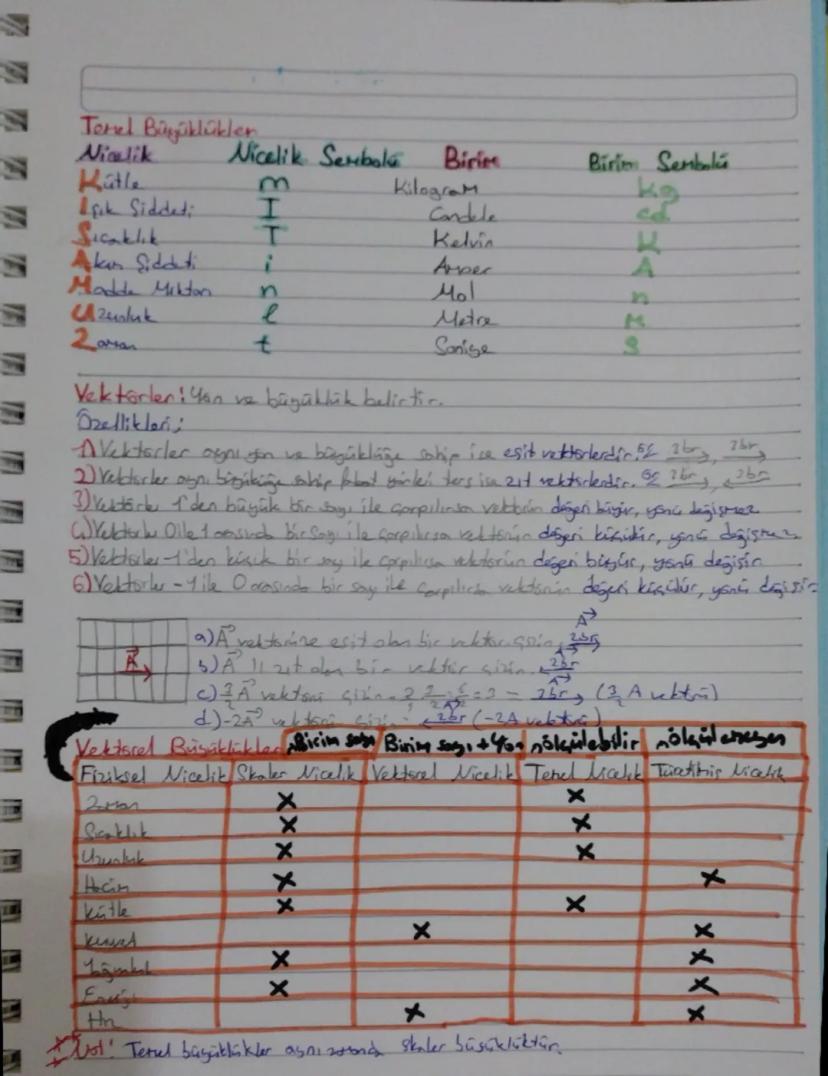 Temel Büyüklükler
Nicelik Nicelik Sembolü Birim Birim Sembolü
Kütle m Kilogram kg
Işık Şiddeti I Candele cd
Sıcaklık T Kelvin K
Akım Şiddeti i Amper A
Madde Miktarı n Mol n
Uzunluk l Metre M
Zaman t Saniye S
Vektörler: Yön ve büyüklük belirtir.
Özellikleri;
1) Vektörler aynı yön ve büyüklüğe sahip ise eşit vektörlerdir. 2br, 2br
2) Vektörler aynı büyüklüğe sahip fakat yönleri ters ise zıt vektörlerdir. 2br, 2br
3) Vektörler 1'den büyük bir sayı ile çarpılırsa vektörün değeri büyür, yönü değişmez
4) Vektörler 0 ile 1 arasında bir sayı ile çarpılırsa vektörün değeri küçülür, yönü değişmez
5) Vektörler -1'den küçük bir sayı ile çarpılırsa vektörün değeri büyür, yönü değişir.
6) Vektörler -1 ile 0 arasında bir sayı ile çarpılırsa vektörün değeri küçülür, yönü değişir
A
a) A vektörüne eşit olan bir vektör çizin. A 2br
b) A 11 zıt olan bir vektör çizin. 2br
c) 3/2 A vektörü çizin. = 3 = 2br (3/2 A vektörü)
d) -2A vektörü çizin. 2br (-2A vektörü)
Vektörel Büyüklükler Birim sayı Birim sayı + Yön ölçülebilir ölçülemeyen
Fiziksel Nicelik Skaler Nicelik Vektörel Nicelik Temel Nicelik Türetilmiş Nicelik
Zaman X X
Sıcaklık X X
Uzunluk X X
Hacim X X
Kütle X X
Kuvvet X X
Yoğunluk X X
Enerji X X
Hız X X
Not! Temel büyüklükler aynı zamanda skaler büyüklüktür.